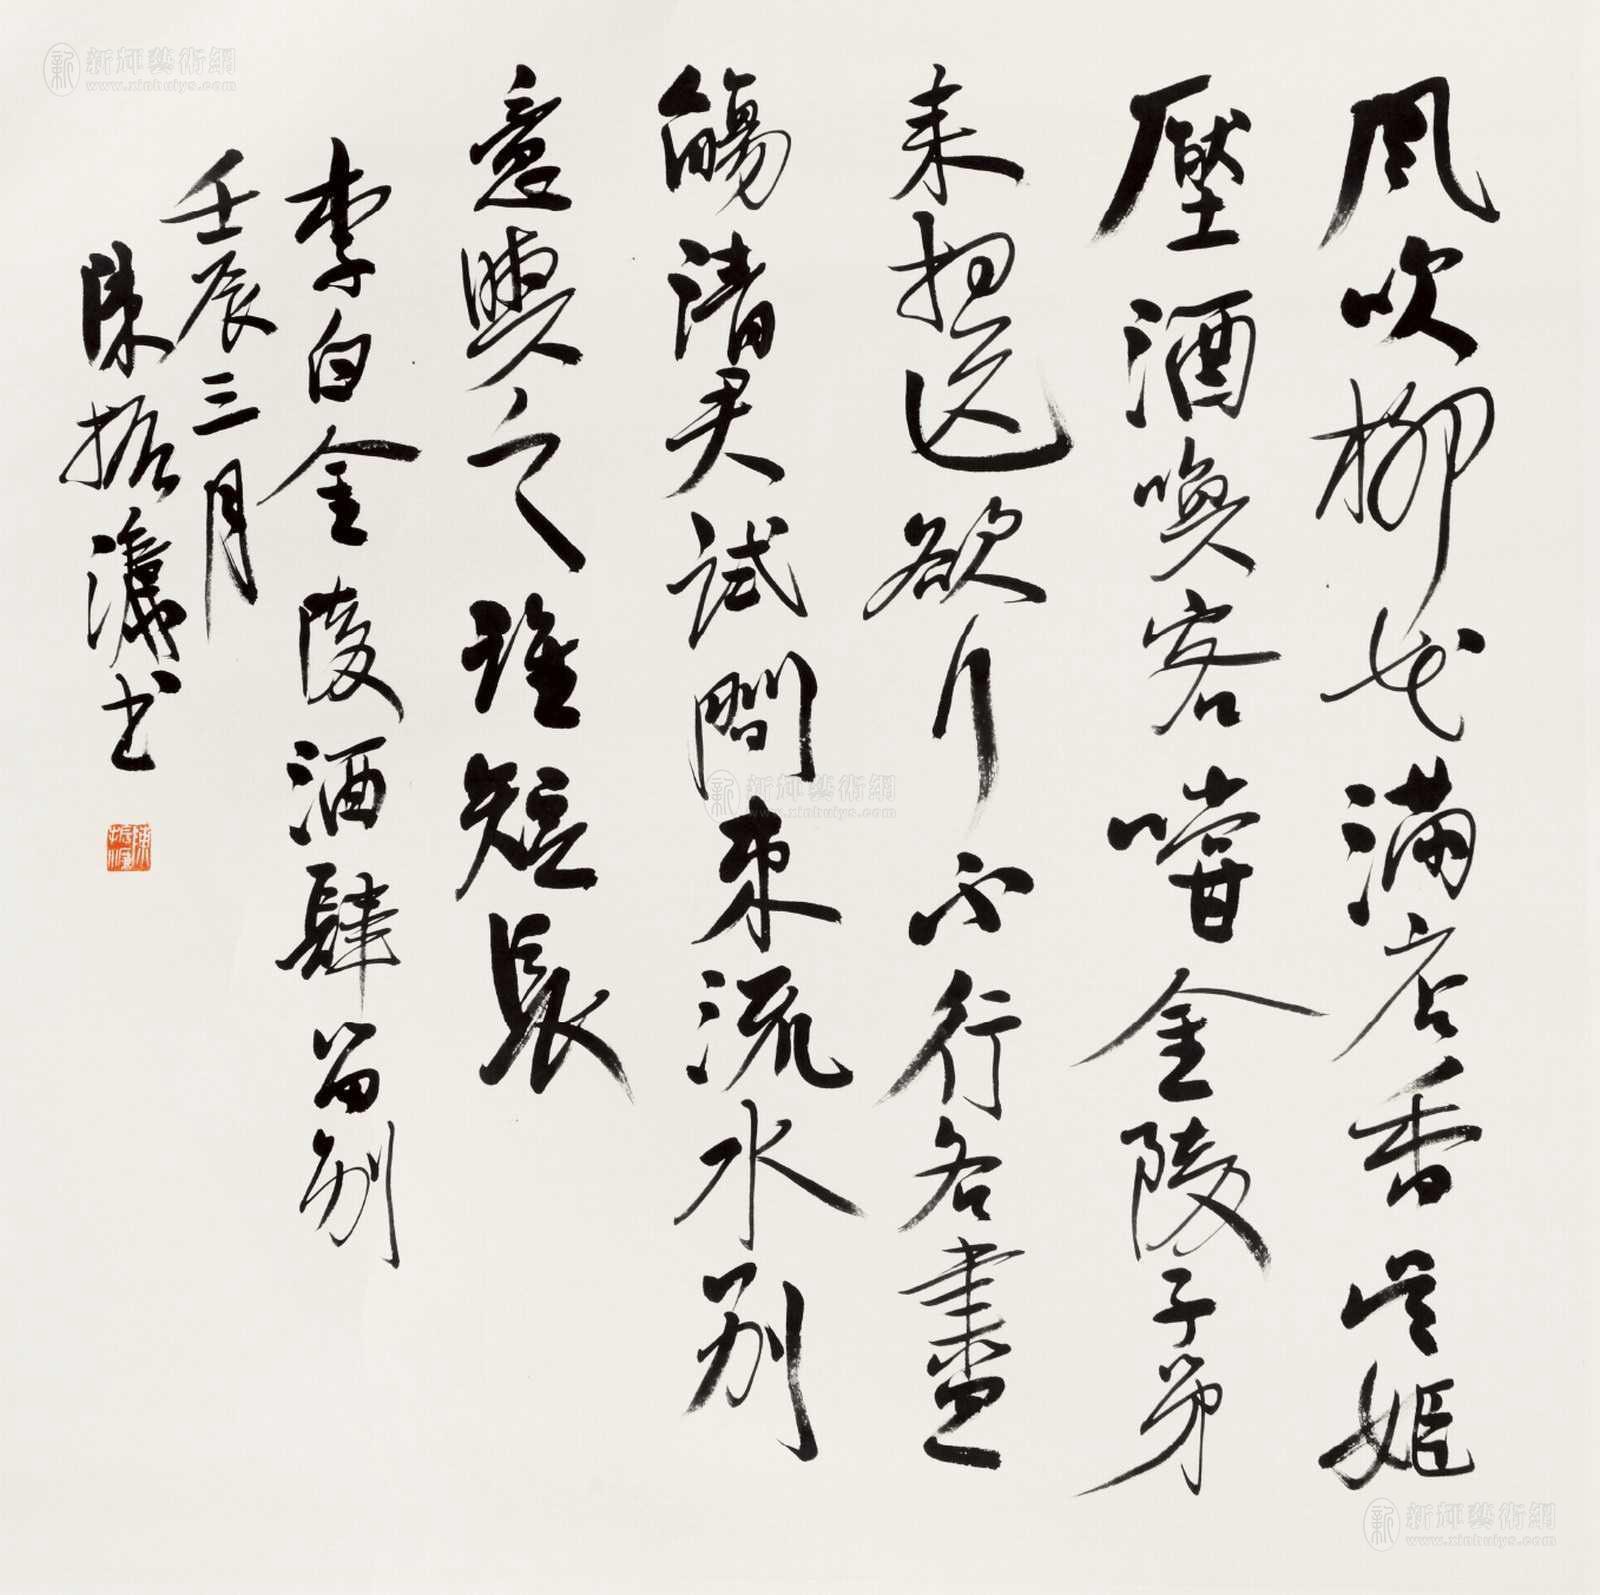 風吹柳花滿店香吳姬
壓酒喚客嚐金陵子弟
來相送欲行不行各盡
觴請君試問東流水別
意與之誰短長
李白金陵酒肆留別
壬辰三月
陳振濂書
陳振濂
新輝藝術網
www.xinhuiys.com
新輝藝術網
www.xinhuiys.com
新輝藝術網
www.xinhuiys.com